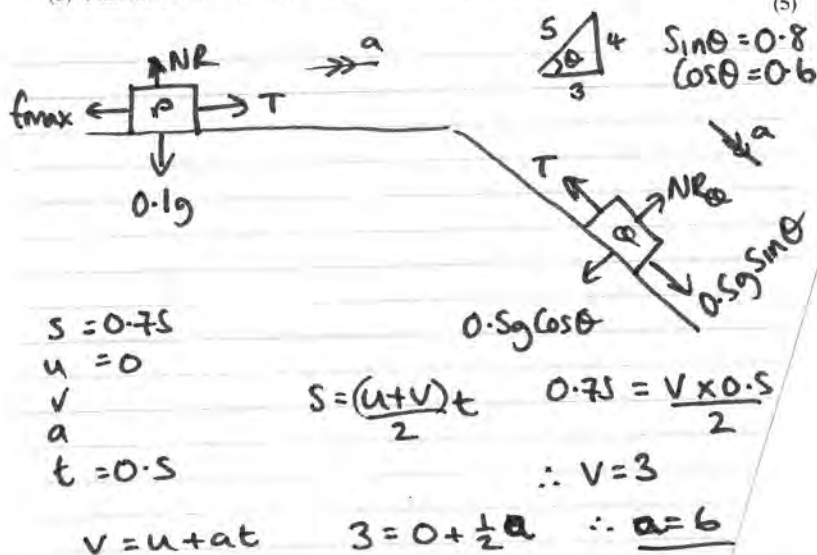 (5)
NR
a
5 4 θ 3
Sinθ = 0.8
Cosθ = 0.6
fmax P T
0.1g
a
T NR Q
Q
0.5g Sinθ
0.5g Cosθ
s = 0.75
u = 0
v
a
t = 0.5
S = (u+v)t / 2 0.75 = V × 0.5 / 2
∴ V = 3
V = u + at 3 = 0 + 1/2 a ∴ a = 6